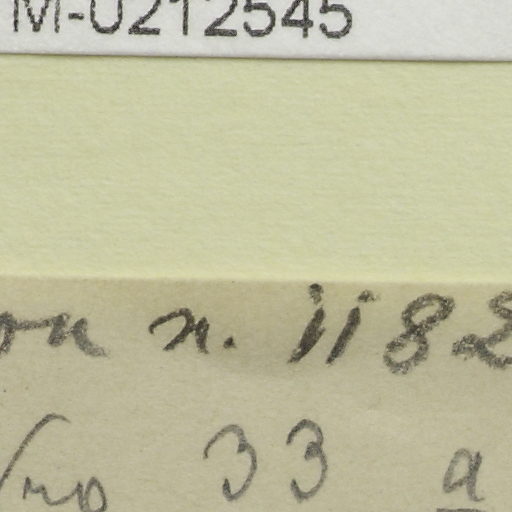 M-0212545
on n. 1182
No 33 a